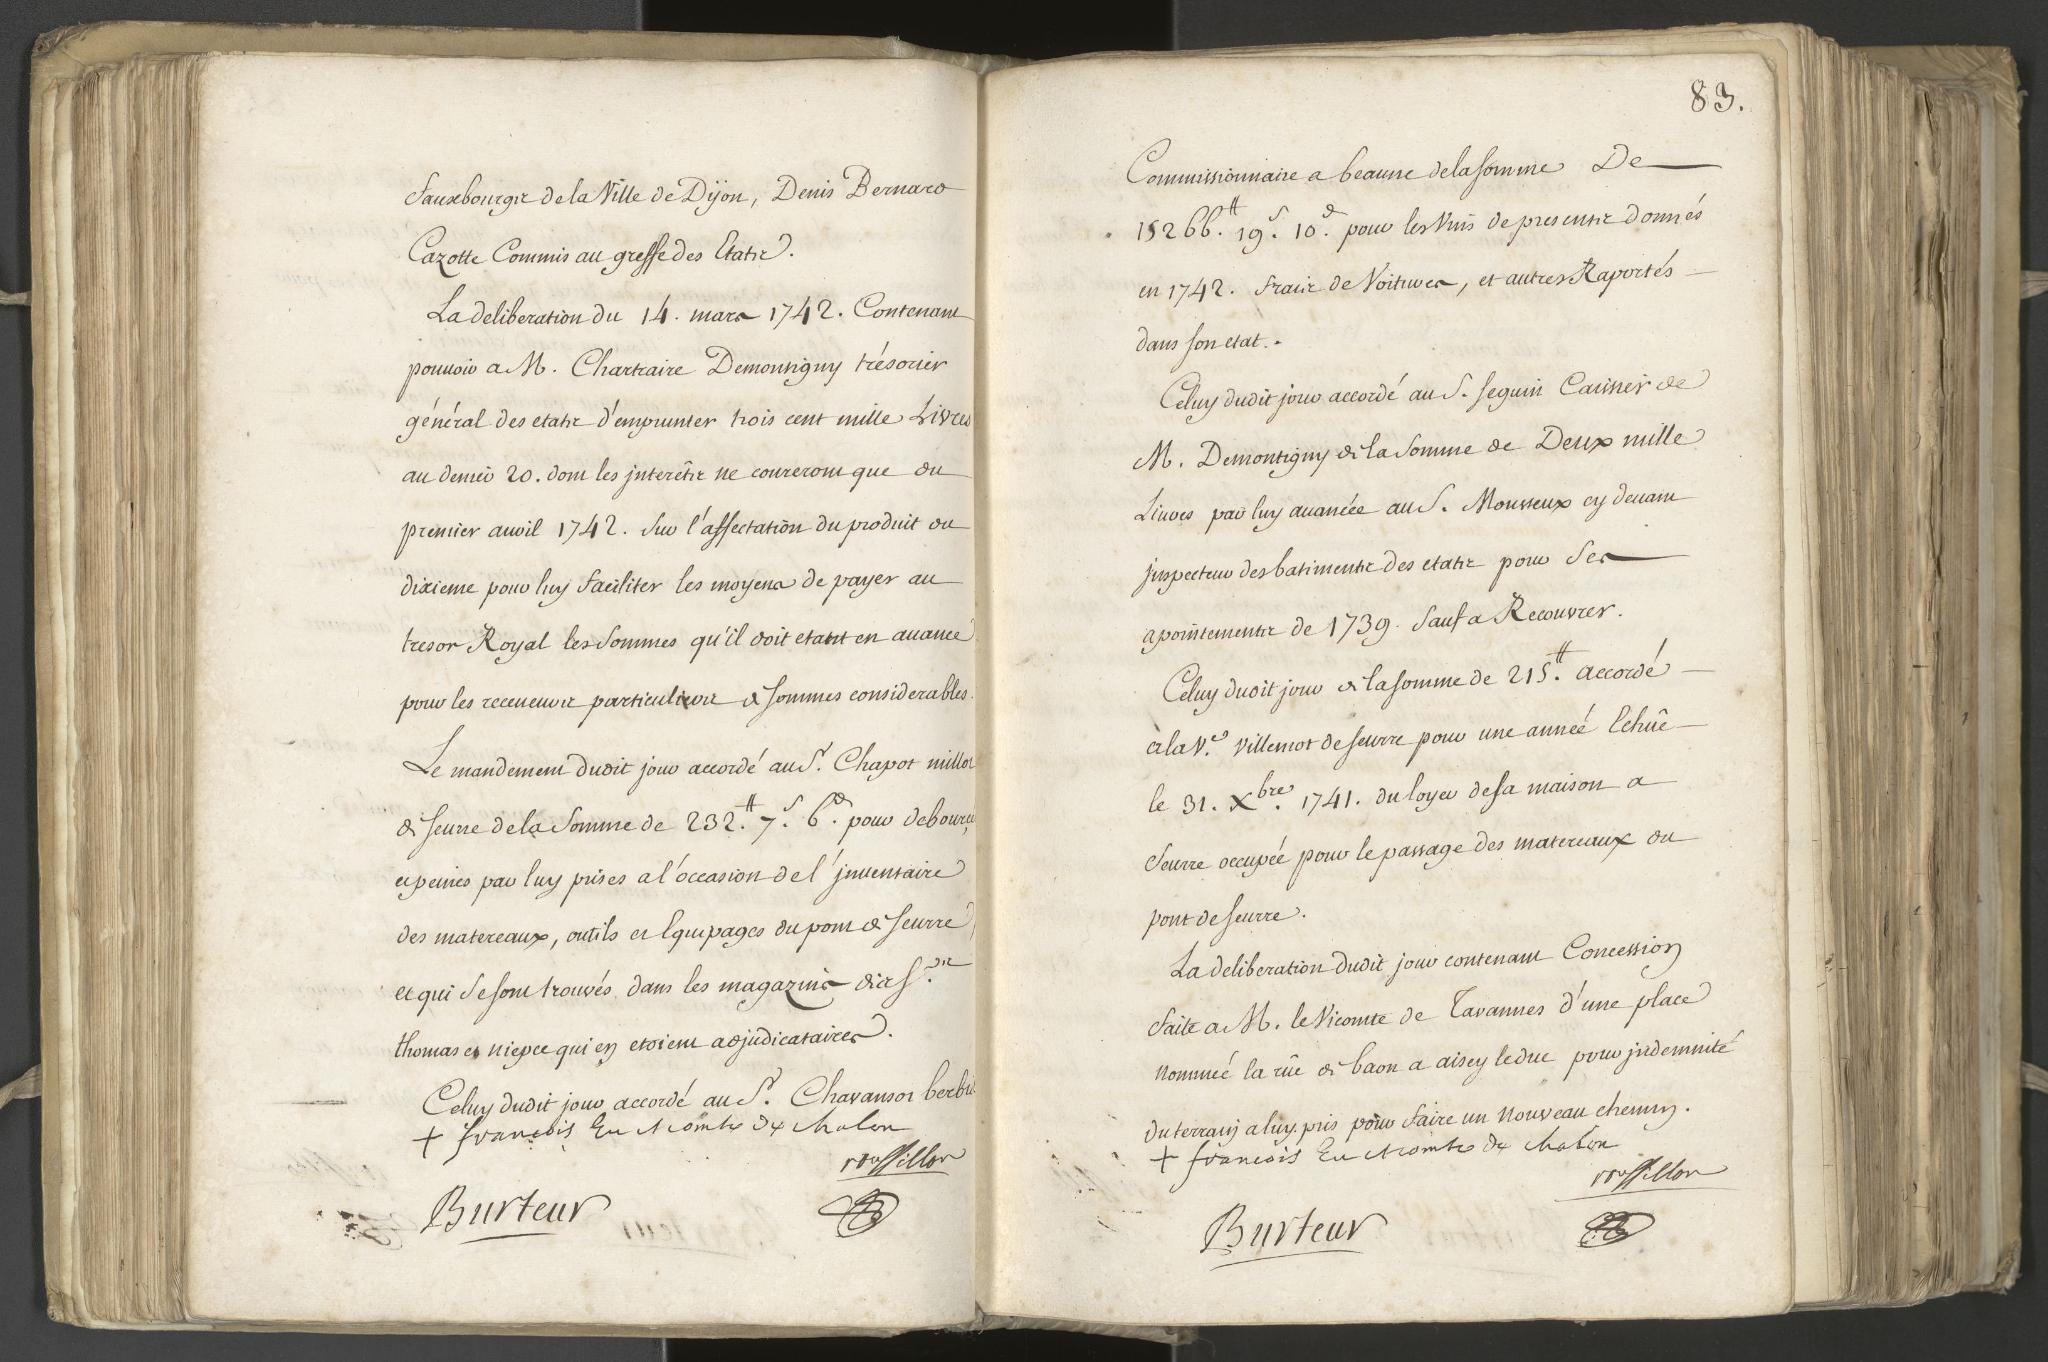 fauxbourgs de la Ville de Dijon, Denis Bernard
Cazotte Commis au greffe des Etats.
La deliberation du 14. mars 1742. Contenant
pouvoir a M. Chartraire Demontigny trésorier
général des etats d'emprunter trois cent mille Livres
au denier 20. dont les jnterêts ne coureront que du
premier avril 1742. sur l'affectation du produit du
dixieme pour luy faciliter les moyens de payer au
tresor Royal les sommes qu'il doit etant en avance
pour les receveurs particuliers de sommes considerables.
Le mandement dudit jour accordé au Sr. Chapot millot
de seurre de la somme de 232.₶ 7.s 6.d pour debourcé
et peines par luy prises a l'occasion de l'jnventaire
des matereaux, outils et Equipages du pont de seurre,
et qui se sont trouvés dans les magazins des Srs.
thomas et niepce qui en etoient adjudicataires.
Celuy dudit jour accordé au Sr. Chavansot
+ françois Ev. Comte de Chalon
rouffillon
Burteur
83.
Commissionnaire a beaune de la somme De
15266.₶ 19.s 10.d pour les Vins de presents donnés
en 1742. frais de Voitures, et autres Raportés
dans son etat.
Celuy dudit jour accordé au S. seguin Caissier de
M. Demontigny de la somme de Deux mille
Livres par luy avancée au S. Mousseux cy devant
jnspecteur des batiments des etats pour ses
apointements de 1739. sauf a Recouvrer.
Celuy dudit jour de la somme de 215.₶ accordé
a la Ve. Villemot de seurre pour une année Echuë
le 31. Xbre. 1741. du loyer de sa maison a
seurre occupée pour le passage des matereaux du
pont de seurre.
La deliberation dudit jour contenant Concession
faite a M. le Vicomte de Tavannes d'une place
nommée la rûe de baon a aisey le duc pour jndemnité
du terrain a luy pris pour faire un nouveau chemin.
+ françois Ev. Comte de Chalon
rouffillon
Burteur